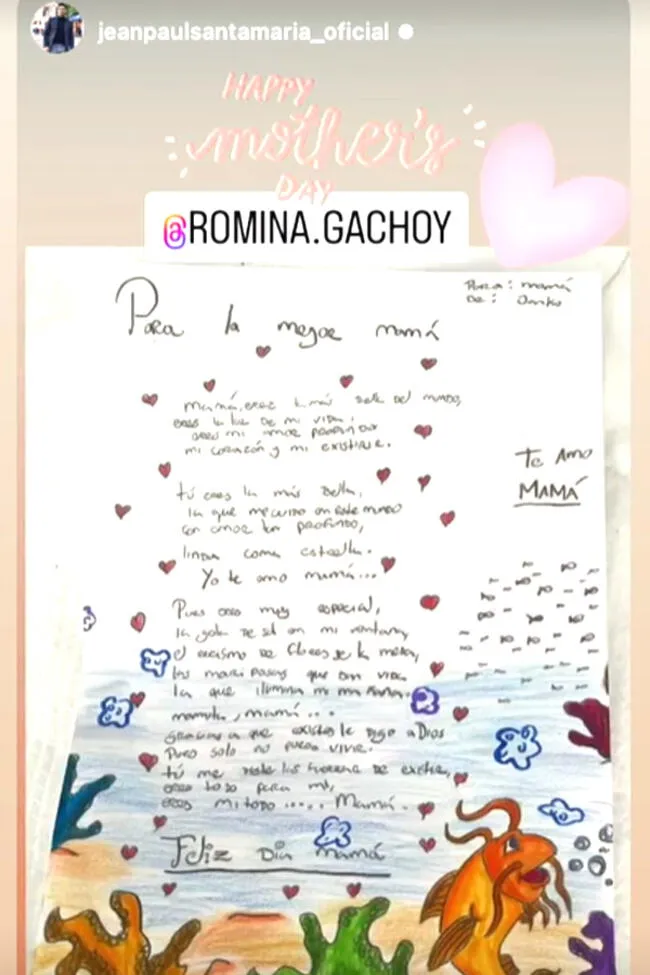 jeanpaulsantamaria_oficial
HAPPY
mother's
DAY
@ROMINA.GACHOY
Para: mamá
De:
Para la mejor mamá
Mamá, eres la más bella del mundo,
eres la luz de mi vida,
eres mi amor profundo
mi corazón y mi existir.
Te Amo
MAMÁ
tú eres la más bella,
la que me cuido en este mundo
con amor tan profundo,
linda como estrella.
Yo te amo mamá...
Pues eres muy especial,
la gota de sol en mi ventana,
el de la meta,
las mariposas que dan vida
la que ilumina mi mañana.
mamita, mamá...
gracias a que existes le digo a Dios
Pues solo no puedo vivir.
tú me diste la de existir,
eres todo para mi,
eres mi todo ..... Mamá.
Feliz Día mamá